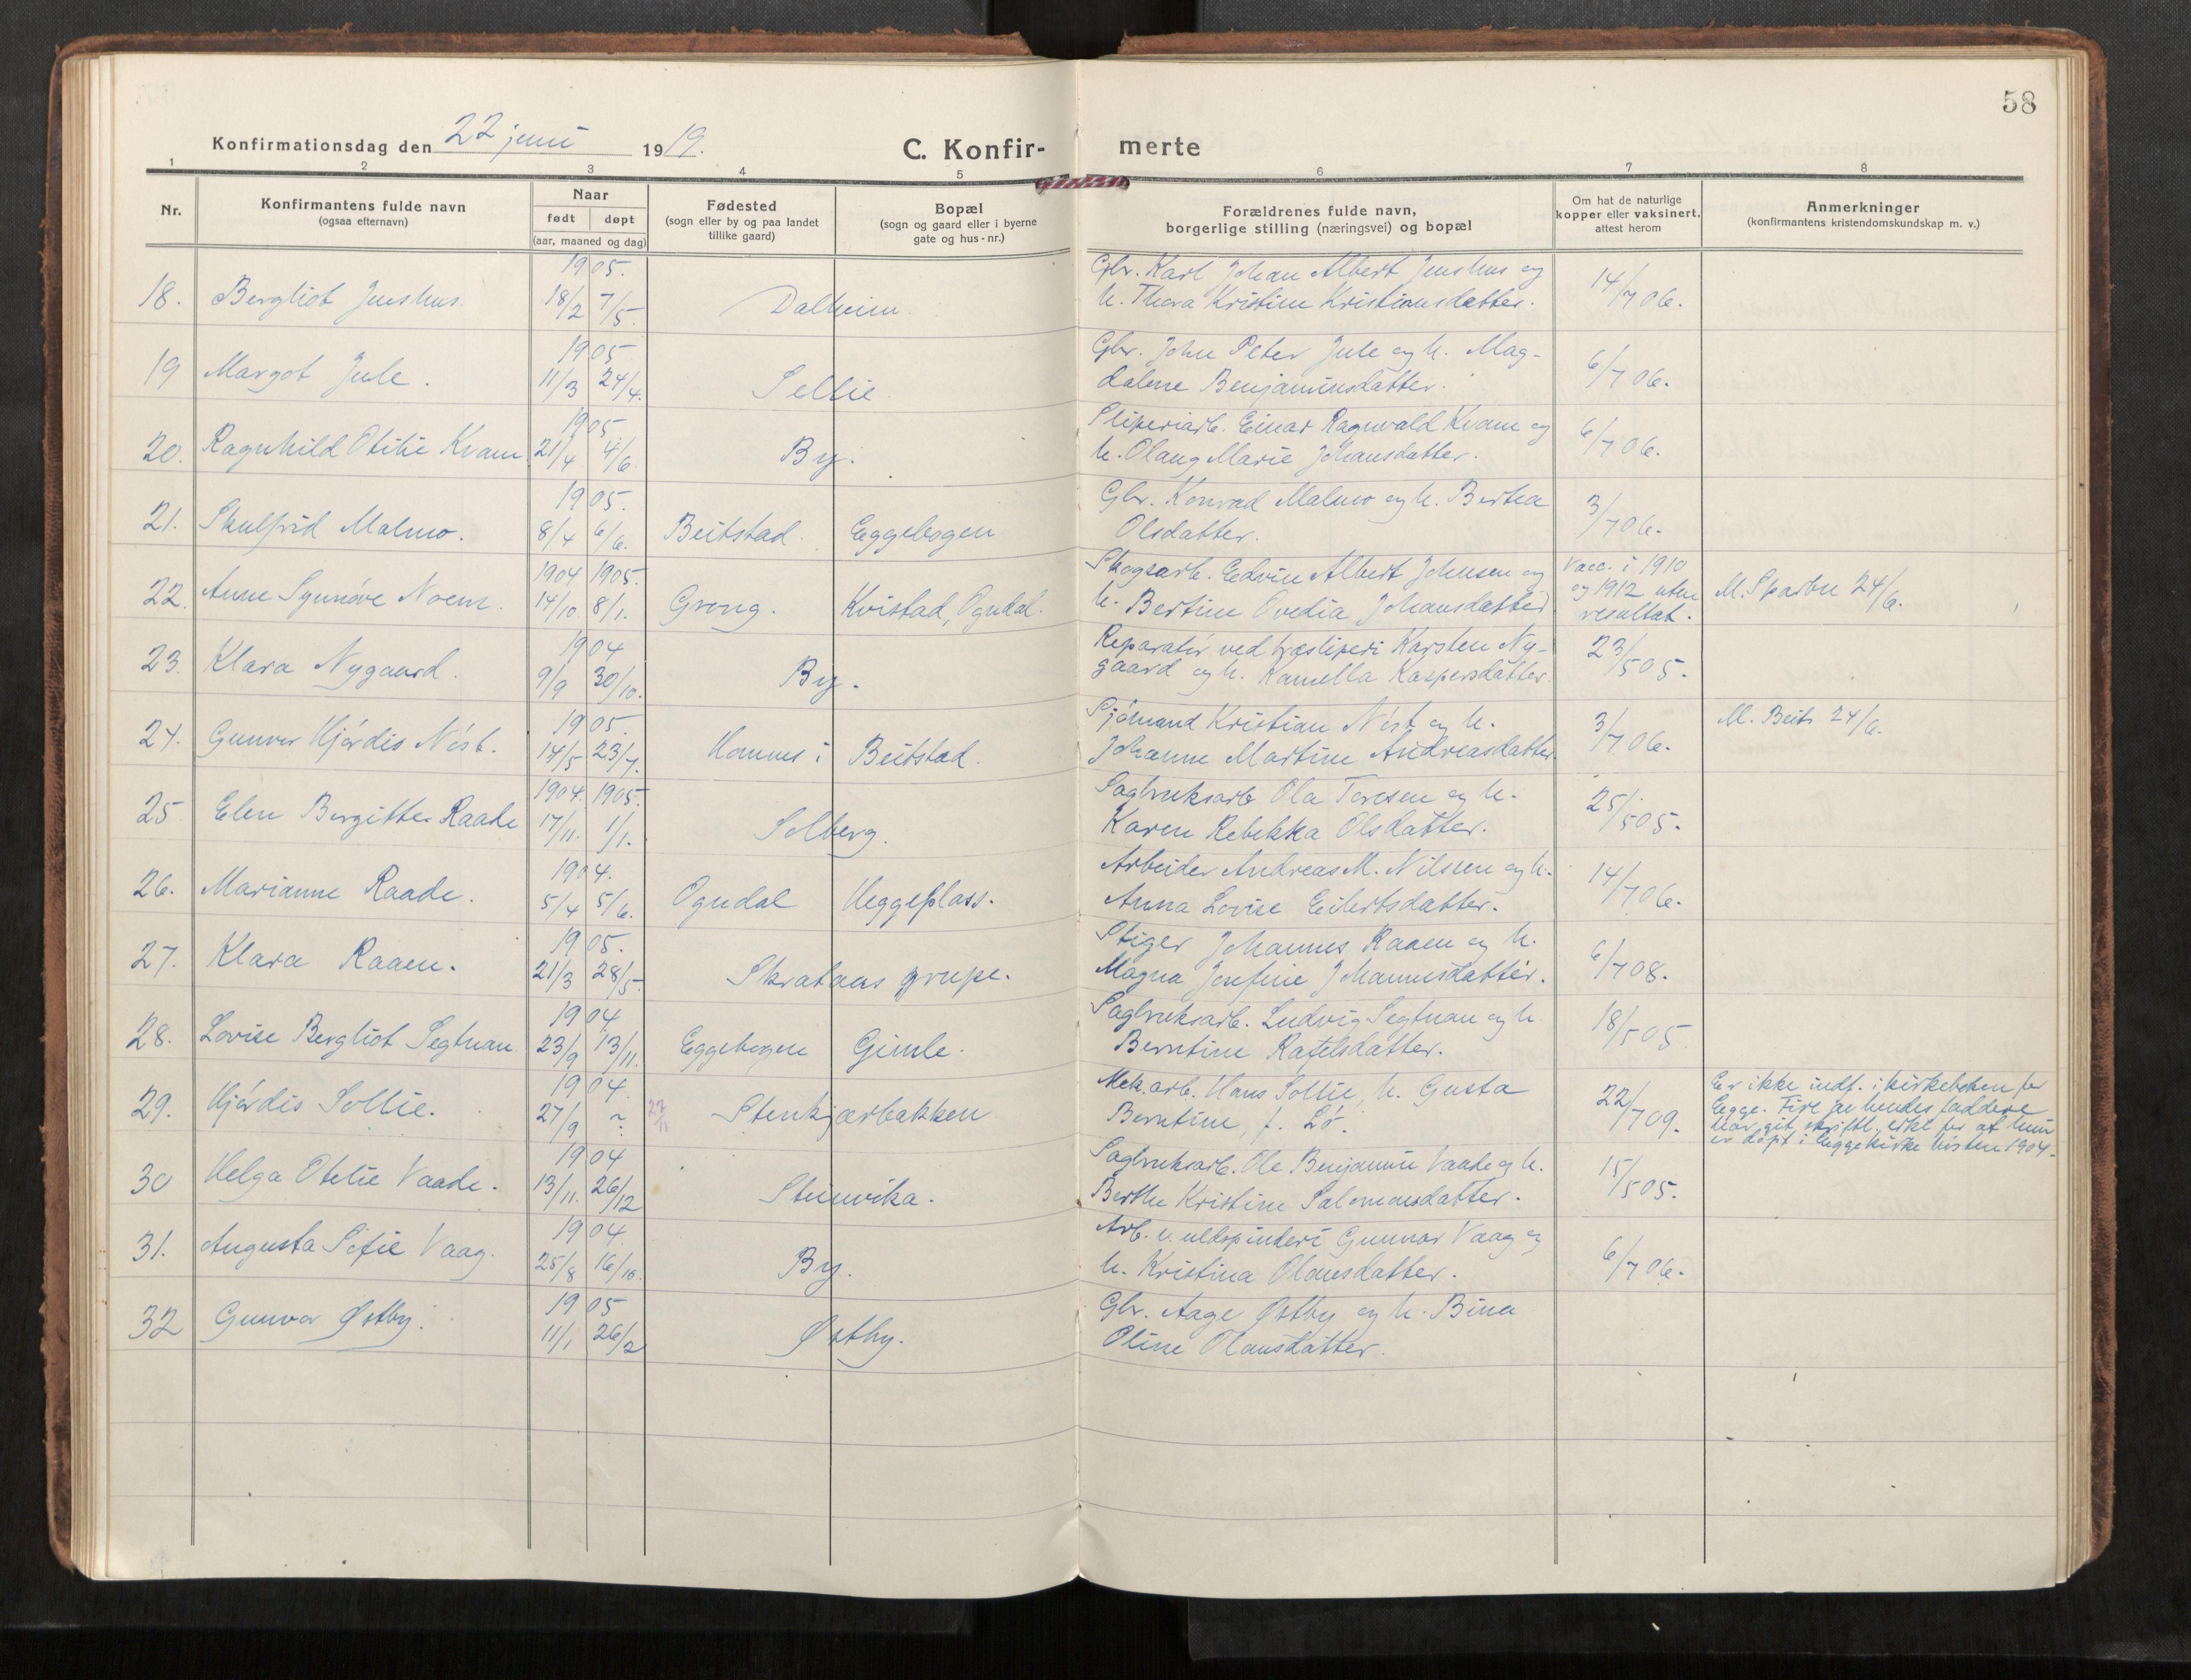 58
Konfirmationsdag den 22 juni 1919.
C. Konfirmerte
1 2 3 4 5 6 7 8
Nr.
Konfirmantens fulde navn
(ogsaa efternavn)
Naar
født døpt
(aar, maaned og dag)
Fødested
(sogn eller by og paa landet
tillike gaard)
Bopæl
(sogn og gaard eller i byerne
gate og hus-nr.)
Forældrenes fulde navn,
borgerlige stilling (næringsvei) og bopæl
Om hat de naturlige
kopper eller vaksinert,
attest herom
Anmerkninger
(konfirmantens kristendomskundskap m. v.)
1905. Gbr. Karl Johan Albert Jenshus og
18. Bergliot Jenshus. 18/2 7/5. Dalheim. h. Thora Kristine Kristiansdatter. 14/7 06.
1905 Gbr. John Peter Jule og h. Mag-
19 Margot Jule. 11/3 24/4. Sellie dalene Benjaminsdatter. 6/7 06.
1905 Sliperiarb. Einar Ragnvald Kvam og
20. Ragnhild Otilie Kvam 21/4 4/6 By. h. Olaug Marie Johansdatter. 6/7 06.
1905. Gbr. Konrad Malmo og h. Bertea
21. Skulfrid Malmo. 8/4 6/6. Beitstad. Eggebogen Olsdatter. 3/7 06.
1904 1905. Skogsarb. Edvin Albert Johnsen og Vacc. i 1910
22. Anne Synnöve Noem. 14/10. 8/1. Grong. Kvistad, Ogndal. h. Bertine Ovedia Johansdatter og 1912 uten M. Sparbu 24/6.
resultat.
1904 Reparatör ved træsliperi Karsten Ny-
23. Klara Nygaard. 9/9 30/10. By. gaard og h. Kamella Kaspersdatter. 23/5 05.
1905. Sjömand Kristian Nöst og h.
24. Gunvor Hjördis Nöst. 14/5 23/7. Hammes i Beitstad. Johanne Martine Andreasdatter. 3/7 06. M. Beits 24/6.
1904. 1905. Sagbruksarb Ola Toresen og h.
25 Elen Bergitte Raade 17/11. 1/1. Solberg. Karen Rebekka Olsdatter. 25/5 05.
1904. Arbeider Andreas M. Nilssen og h.
26. Marianne Raade. 5/4 5/6. Ogndal Heggeplass. Anna Lovise Eilertsdatter. 14/7 06.
1905. Stiger Johannes Raaen og h.
27. Klara Raaen. 21/3 28/5. Skrataas grupe. Magna Josefine Johannesdatter. 6/7 08.
1904 Sagbruksarb. Ludvig Segtnan og h
28. Lovise Bergliot Segtnan 23/9 13/11. Eggebogen Gimle. Berntine Rafelsdatter. 18/5 05
1904. Mek.arb. Hans Sollie, h. Gusta
29. Hjördis Sollie. 27/9 ~ 22/11 Stenkjærbakken Berntine, f. Lö. 22/7 09.
Er ikke indf. i kirkeboken for
Egge. Fire av hendes faddere
har git skriftl. erkl. for at hun
er döpt i Egge kirke hösten 1904.
1904 Sagbruksarb. Ole Benjamin Vaade og h.
30 Helga Otelie Vaade. 13/11. 26/12 Steinvika. Berthe Kristine Salomonsdatter. 15/5 05.
1904. Arb. v. uldspinderi Gunnar Vaag og
31. Augusta Sofie Vaag. 25/8 16/10. By. h. Kristina Olausdatter. 6/7 06.
1905 Gbr. Aage Østby og h. Bina
32 Gunvor Østby. 11/1 26/2 Østby. Oline Olausdatter.